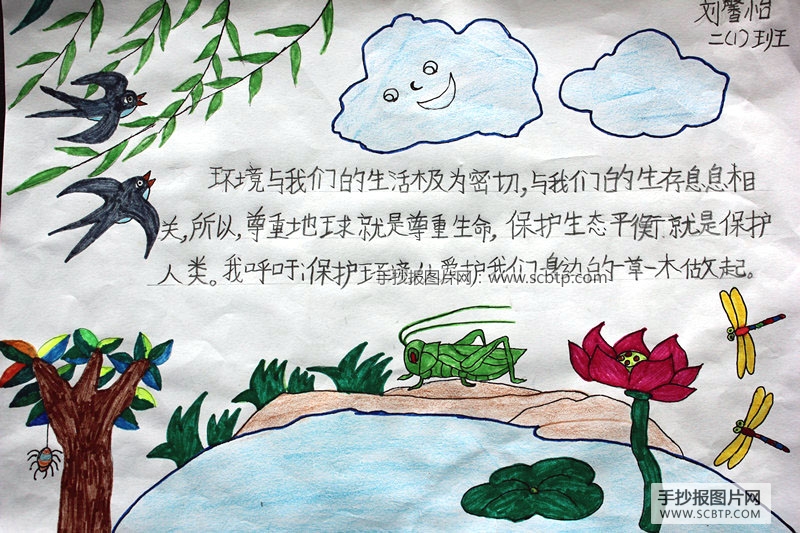 刘馨怡
二(1)班
环境与我们的生活极为密切,与我们的生存息息相
关,所以,尊重地球就是尊重生命,保护生态平衡就是保护
人类。我呼吁:保护环境从爱护我们身边的一草一木做起。
手抄报图片网:www.scbtp.com
手抄报图片网
WWW.SCBTP.COM